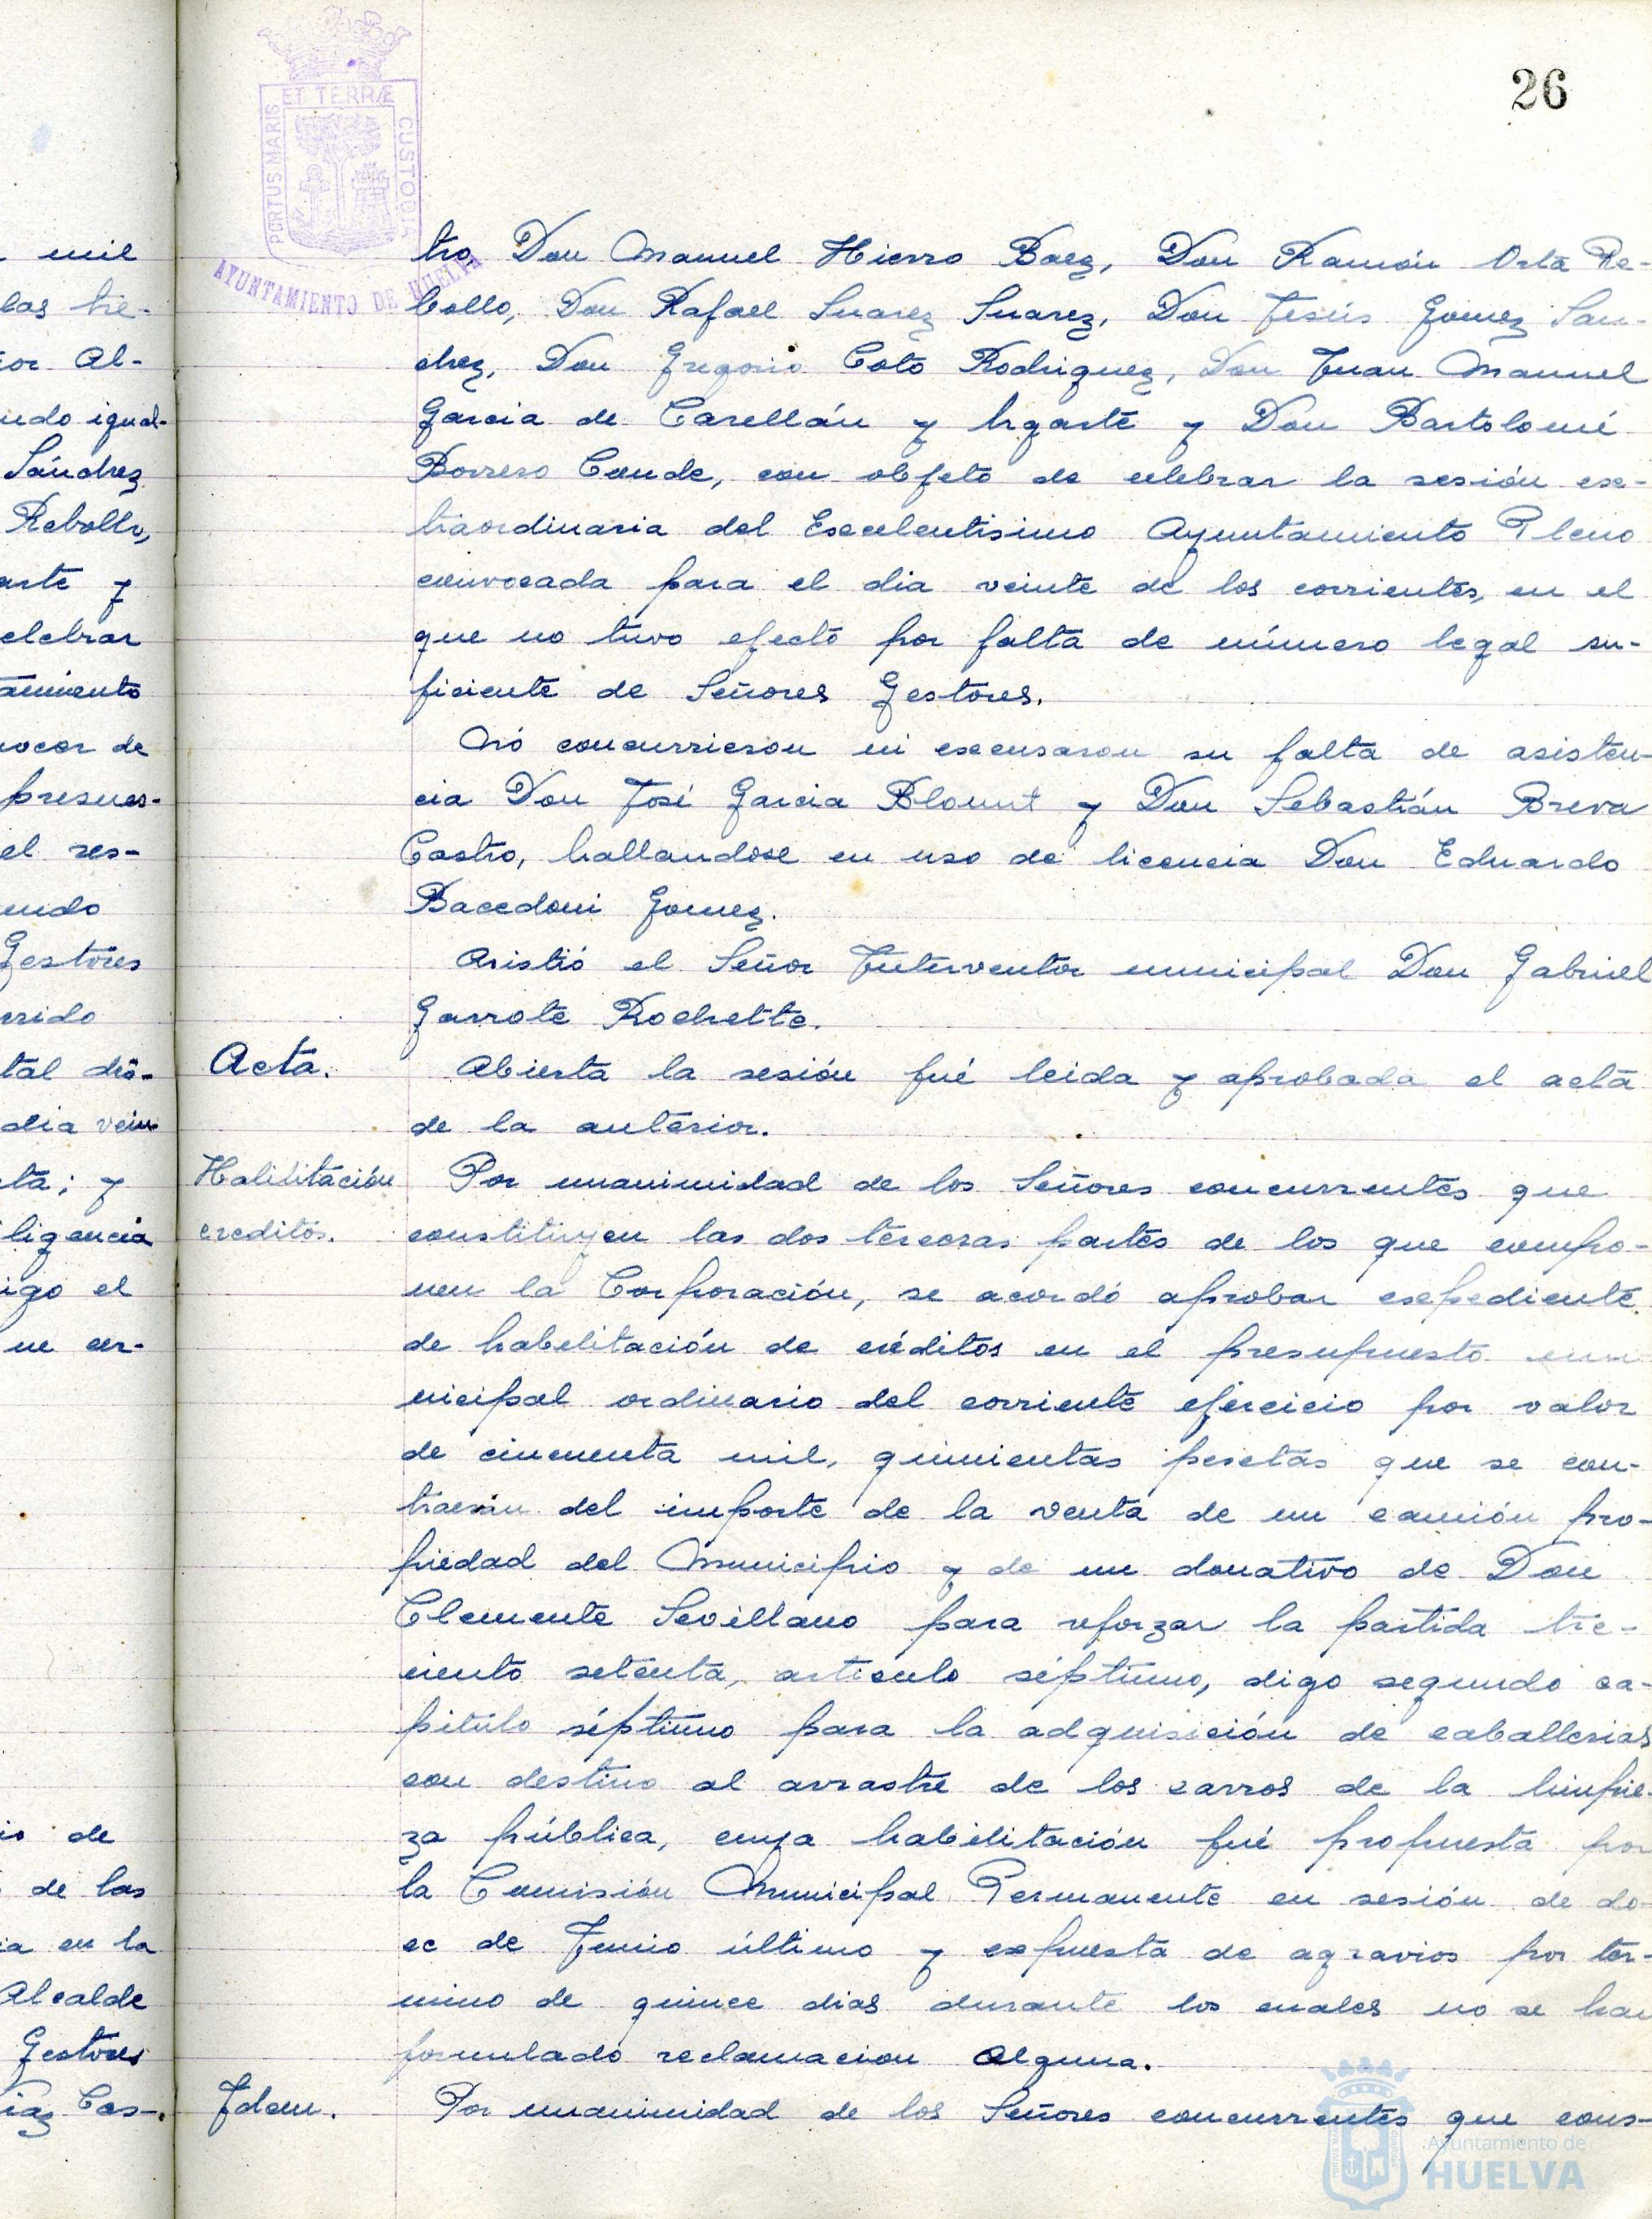 26
PORTUS MARIS ET TERRÆ CUSTODIA
AYUNTAMIENTO DE HUELVA
mil
las tie-
or Al-
ndo igual-
Sánchez
Rebollo,
arte y
elebrar
tamiento
nocer de
presues-
el res-
endo
Gestores
rrido
tal dis-
dia vein
ta; y
ligencia
igo el
ue cer-
io de
de las
ia en la
Alcalde
Gestores
iaz Cas-
tro, Don Manuel Hierro Baez, Don Ramón Orta Re-
bollo, Don Rafael Suarez Suarez, Don Jesús Gomez San-
chez, Don Gregorio Coto Rodriguez, Don Juan Manuel
Garcia de Carellán y Ugarte y Don Bartolomé
Borrero Conde, con objeto de celebrar la sesión ex-
traordinaria del Excelentisimo Ayuntamiento Pleno
convocada para el dia veinte de los corrientes, en el
que no tuvo efecto por falta de número legal su-
ficiente de Señores Gestores.
No concurrieron ni excusaron su falta de asisten-
cia Don José Garcia Blount y Don Sebastián Breva
Castro, hallandose en uso de licencia Don Eduardo
Bacedoni Gomez.
Asistió el Señor Interventor municipal Don Gabriel
Garrote Rochette.
Acta.
Abierta la sesión fué leida y aprobada el acta
de la anterior.
Habilitación
creditos.
Por unanimidad de los Señores concurrentes que
constituyen las dos terceras partes de los que compo-
nen la Corporación, se acordó aprobar expediente
de habilitación de créditos en el presupuesto mu
nicipal ordinario del corriente ejercicio por valor
de cincuenta mil, quinientas pesetas que se con-
traerán del importe de la venta de un camión pro-
piedad del Municipio y de un donativo de Don
Clemente Sevillano para reforzar la partida tre-
ciento setenta, articulo séptimo, digo segundo ca-
pitulo séptimo para la adquisición de caballerias
con destino al arrastre de los carros de la limpie-
za pública, cuya habilitación fué propuesta por
la Comisión Municipal Permanente en sesión de do
ce de Junio último y expuesta de agravios por tér-
mino de quince dias durante los cuales no se han
formulado reclamacion alguna.
Idem.
Por unanimidad de los Señores concurrentes que cons-
Ayuntamiento de
HUELVA